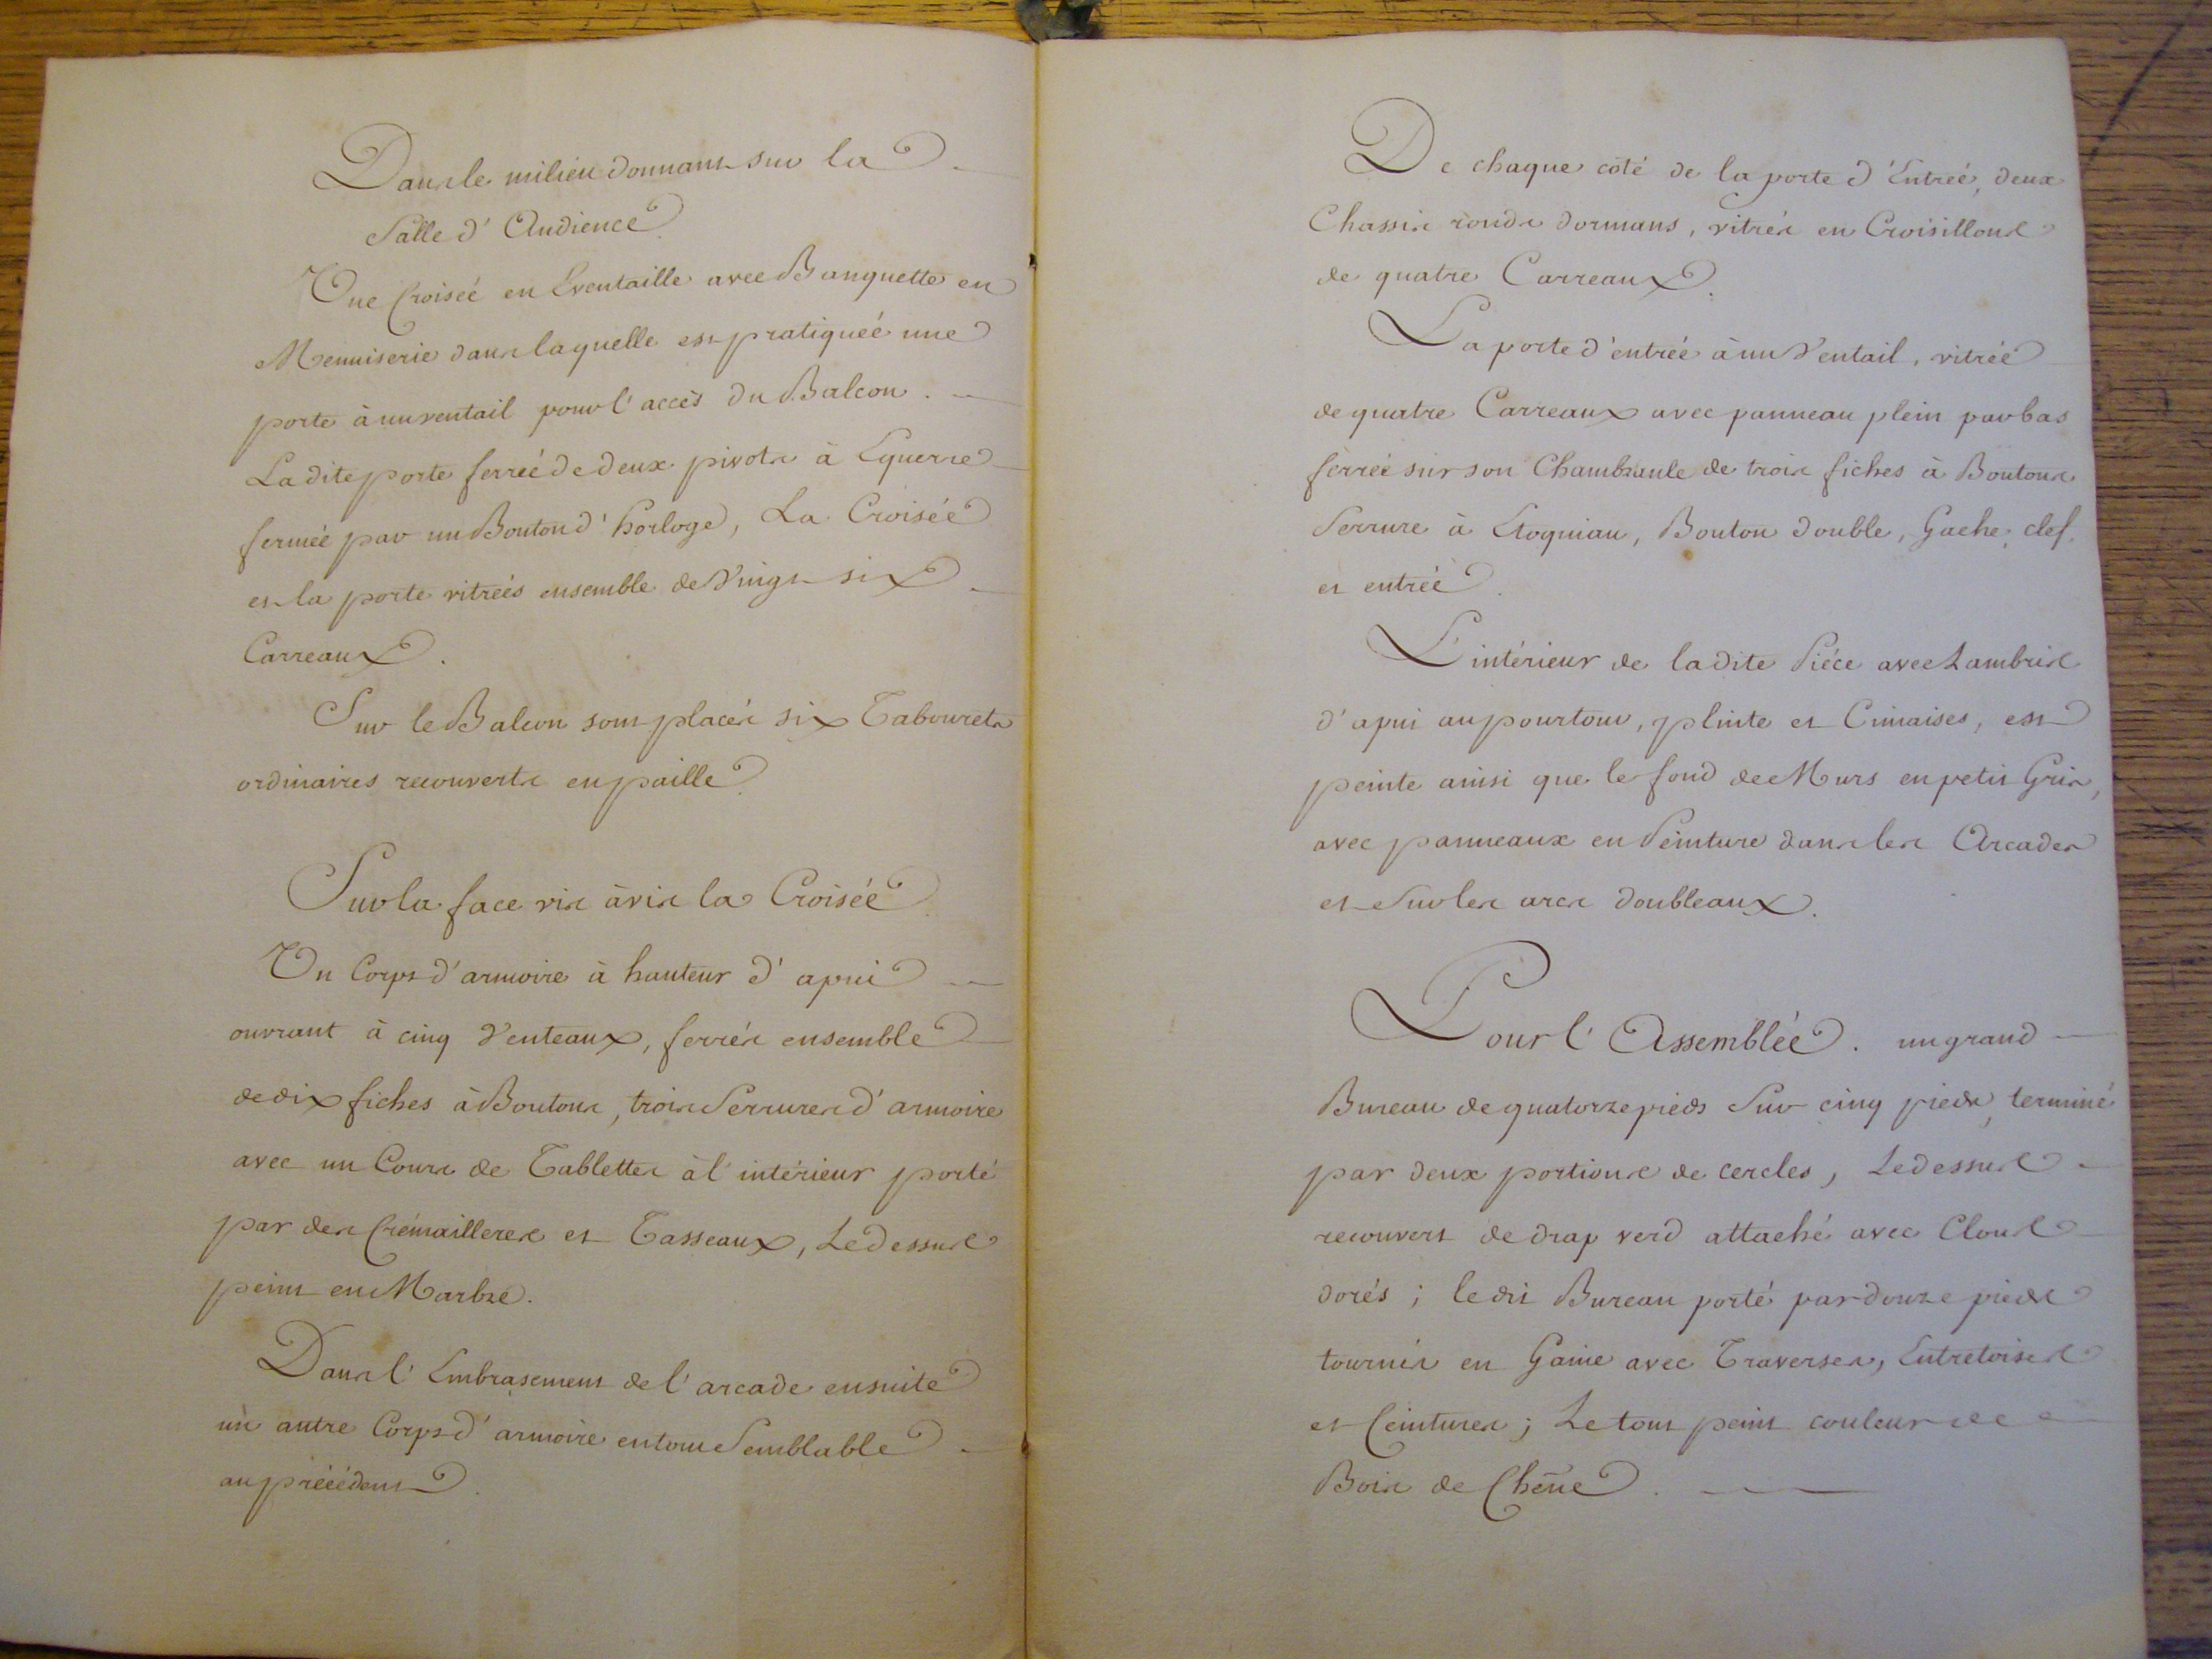 Dans le milieu donnant sur la
Salle d'Audience
Une Croiseé en Eventaille avec Banquette en
Menuiserie dans laquelle est pratiqueé une
porte à un ventail pour l'accès du Balcon.
La dite porte ferreé de deux pivots à Equerre
fermeé par un Bouton d'horloge, La Croisée
et la porte vitreés ensemble de Vingt six
Carreaux.
Sur le Balcon sont placés six Tabourets
ordinaires recouverts en paille.
Sur la face vis à vis la Croisée
Un Corps d'armoire à hauteur d'apui
ouvrant à cinq Venteaux, ferrés ensemble
de dix fiches à Boutons, trois Serrures d'armoire
avec un Cours de Tablettes à l'intérieur porté
par des Crémailleres et Tasseaux, Le dessus
peint en Marbre.
Dans l'Embrasement de l'arcade ensuite
un autre Corps d'armoire en tout Semblable
au précédent.
De chaque côté de la porte d'Entreé, deux
Chassis ronds dormans, vitrés en Croisillons
de quatre Carreaux.
La porte d'entreé à un Ventail, vitreé
de quatre Carreaux avec panneau plein par bas
ferreé sur son Chambranle de trois fiches à Boutons
Serrure à Etoquiau, Bouton double, Gache, clef.
et entreé.
L'intérieur de la dite Piéce avec Lambris
d'apui au pourtour, plinte et Cimaises, est
peinte ainsi que le fond de Murs en petit Gris,
avec panneaux en Peinture dans les Arcades
et Sur les arcs doubleaux.
Pour l'Assemblée. un grand
Bureau de quatorze pieds Sur cinq pieds, terminé
par deux portions de cercles, Le dessus
recouvert de drap verd attaché avec Clous
dorés; le dit Bureau porté par douze pieds
tournés en Gaine avec Traverses, Entretoises
et Ceintures; Le tout peint couleur de
Bois de Chêne.